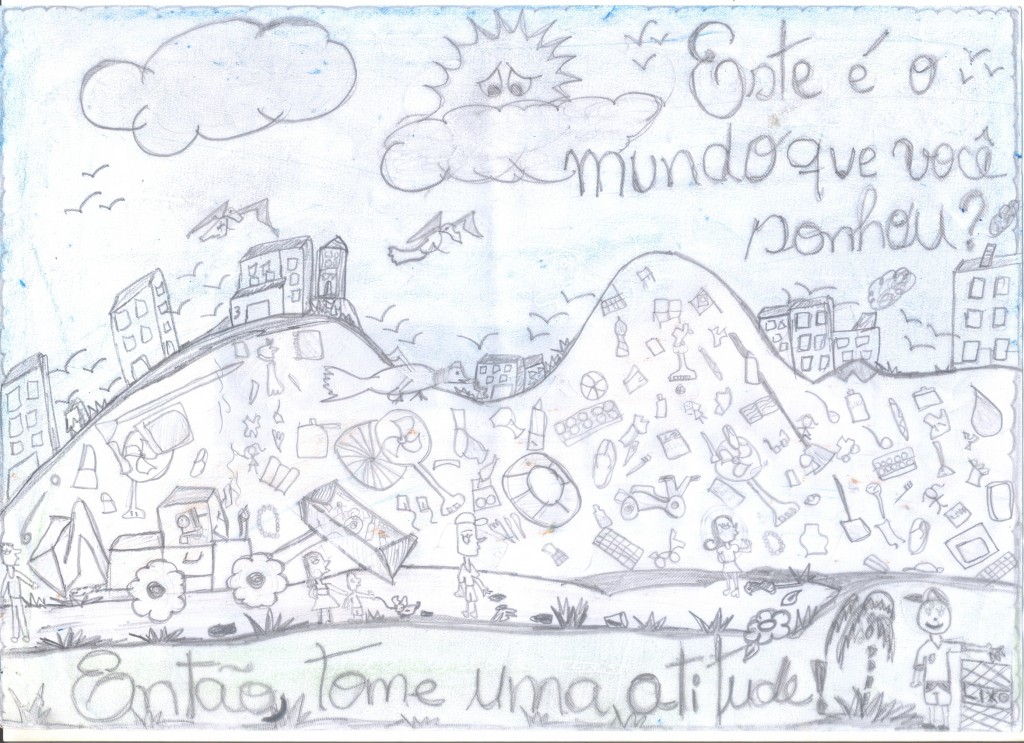 Este é o
mundo que você
sonhou?
3
Então, tome uma atitude!
LIXO